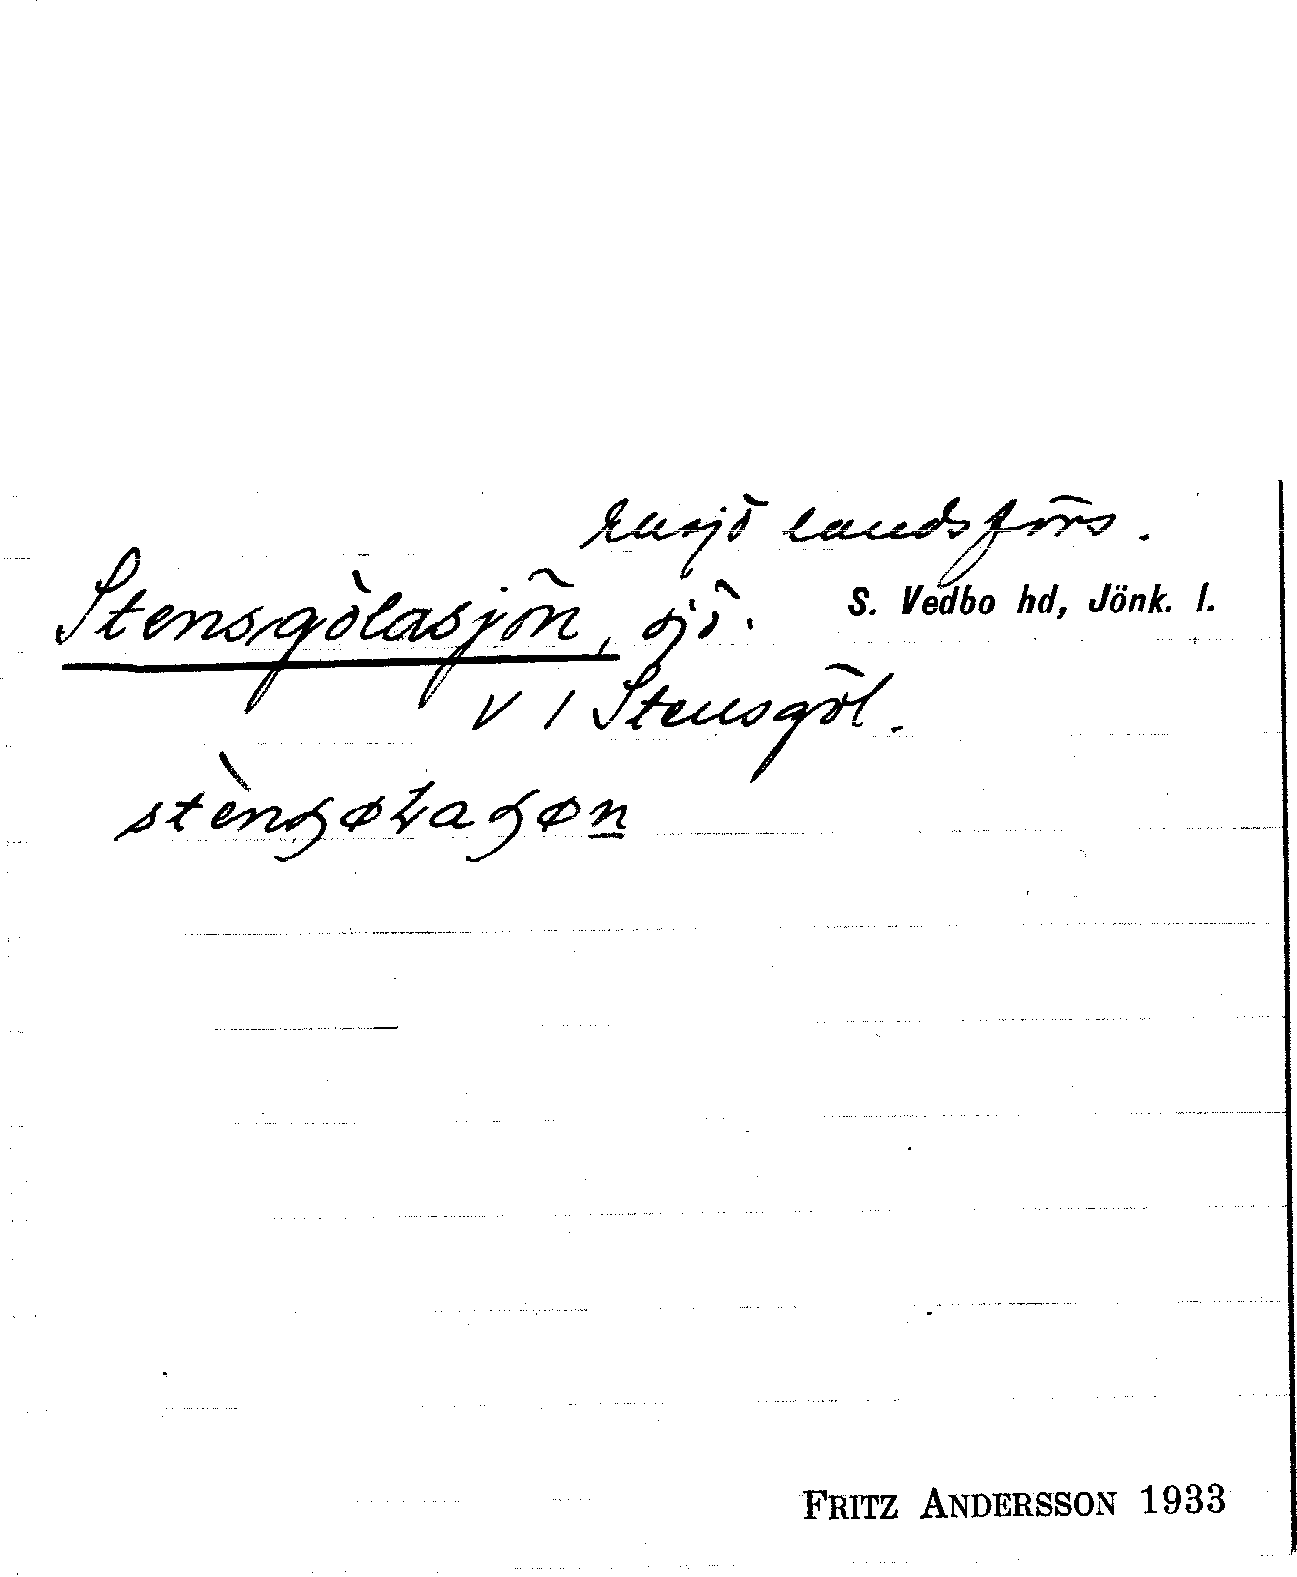 Ensjö landsförs.
Stensgölasjön, sjö. S. Vedbo hd, Jönk. l.
V / Stensgöl.
FRITZ ANDERSSON 1933